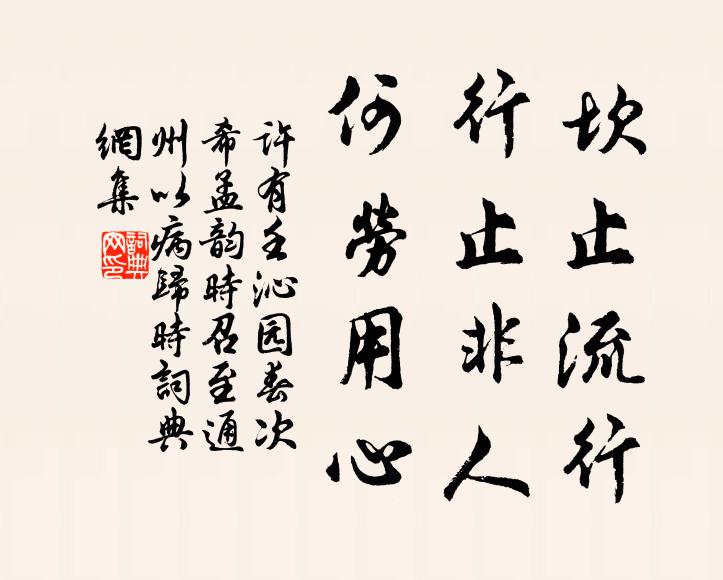 坎止流行
行止非人
何勞用心
许有壬沁园春次
希孟韵時召至通
州以病歸時詞典
網集
詞典
网印